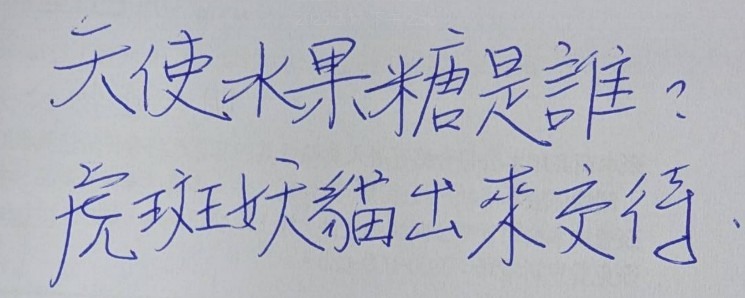 天使水果糖是誰？
虎斑妖貓出來交待.